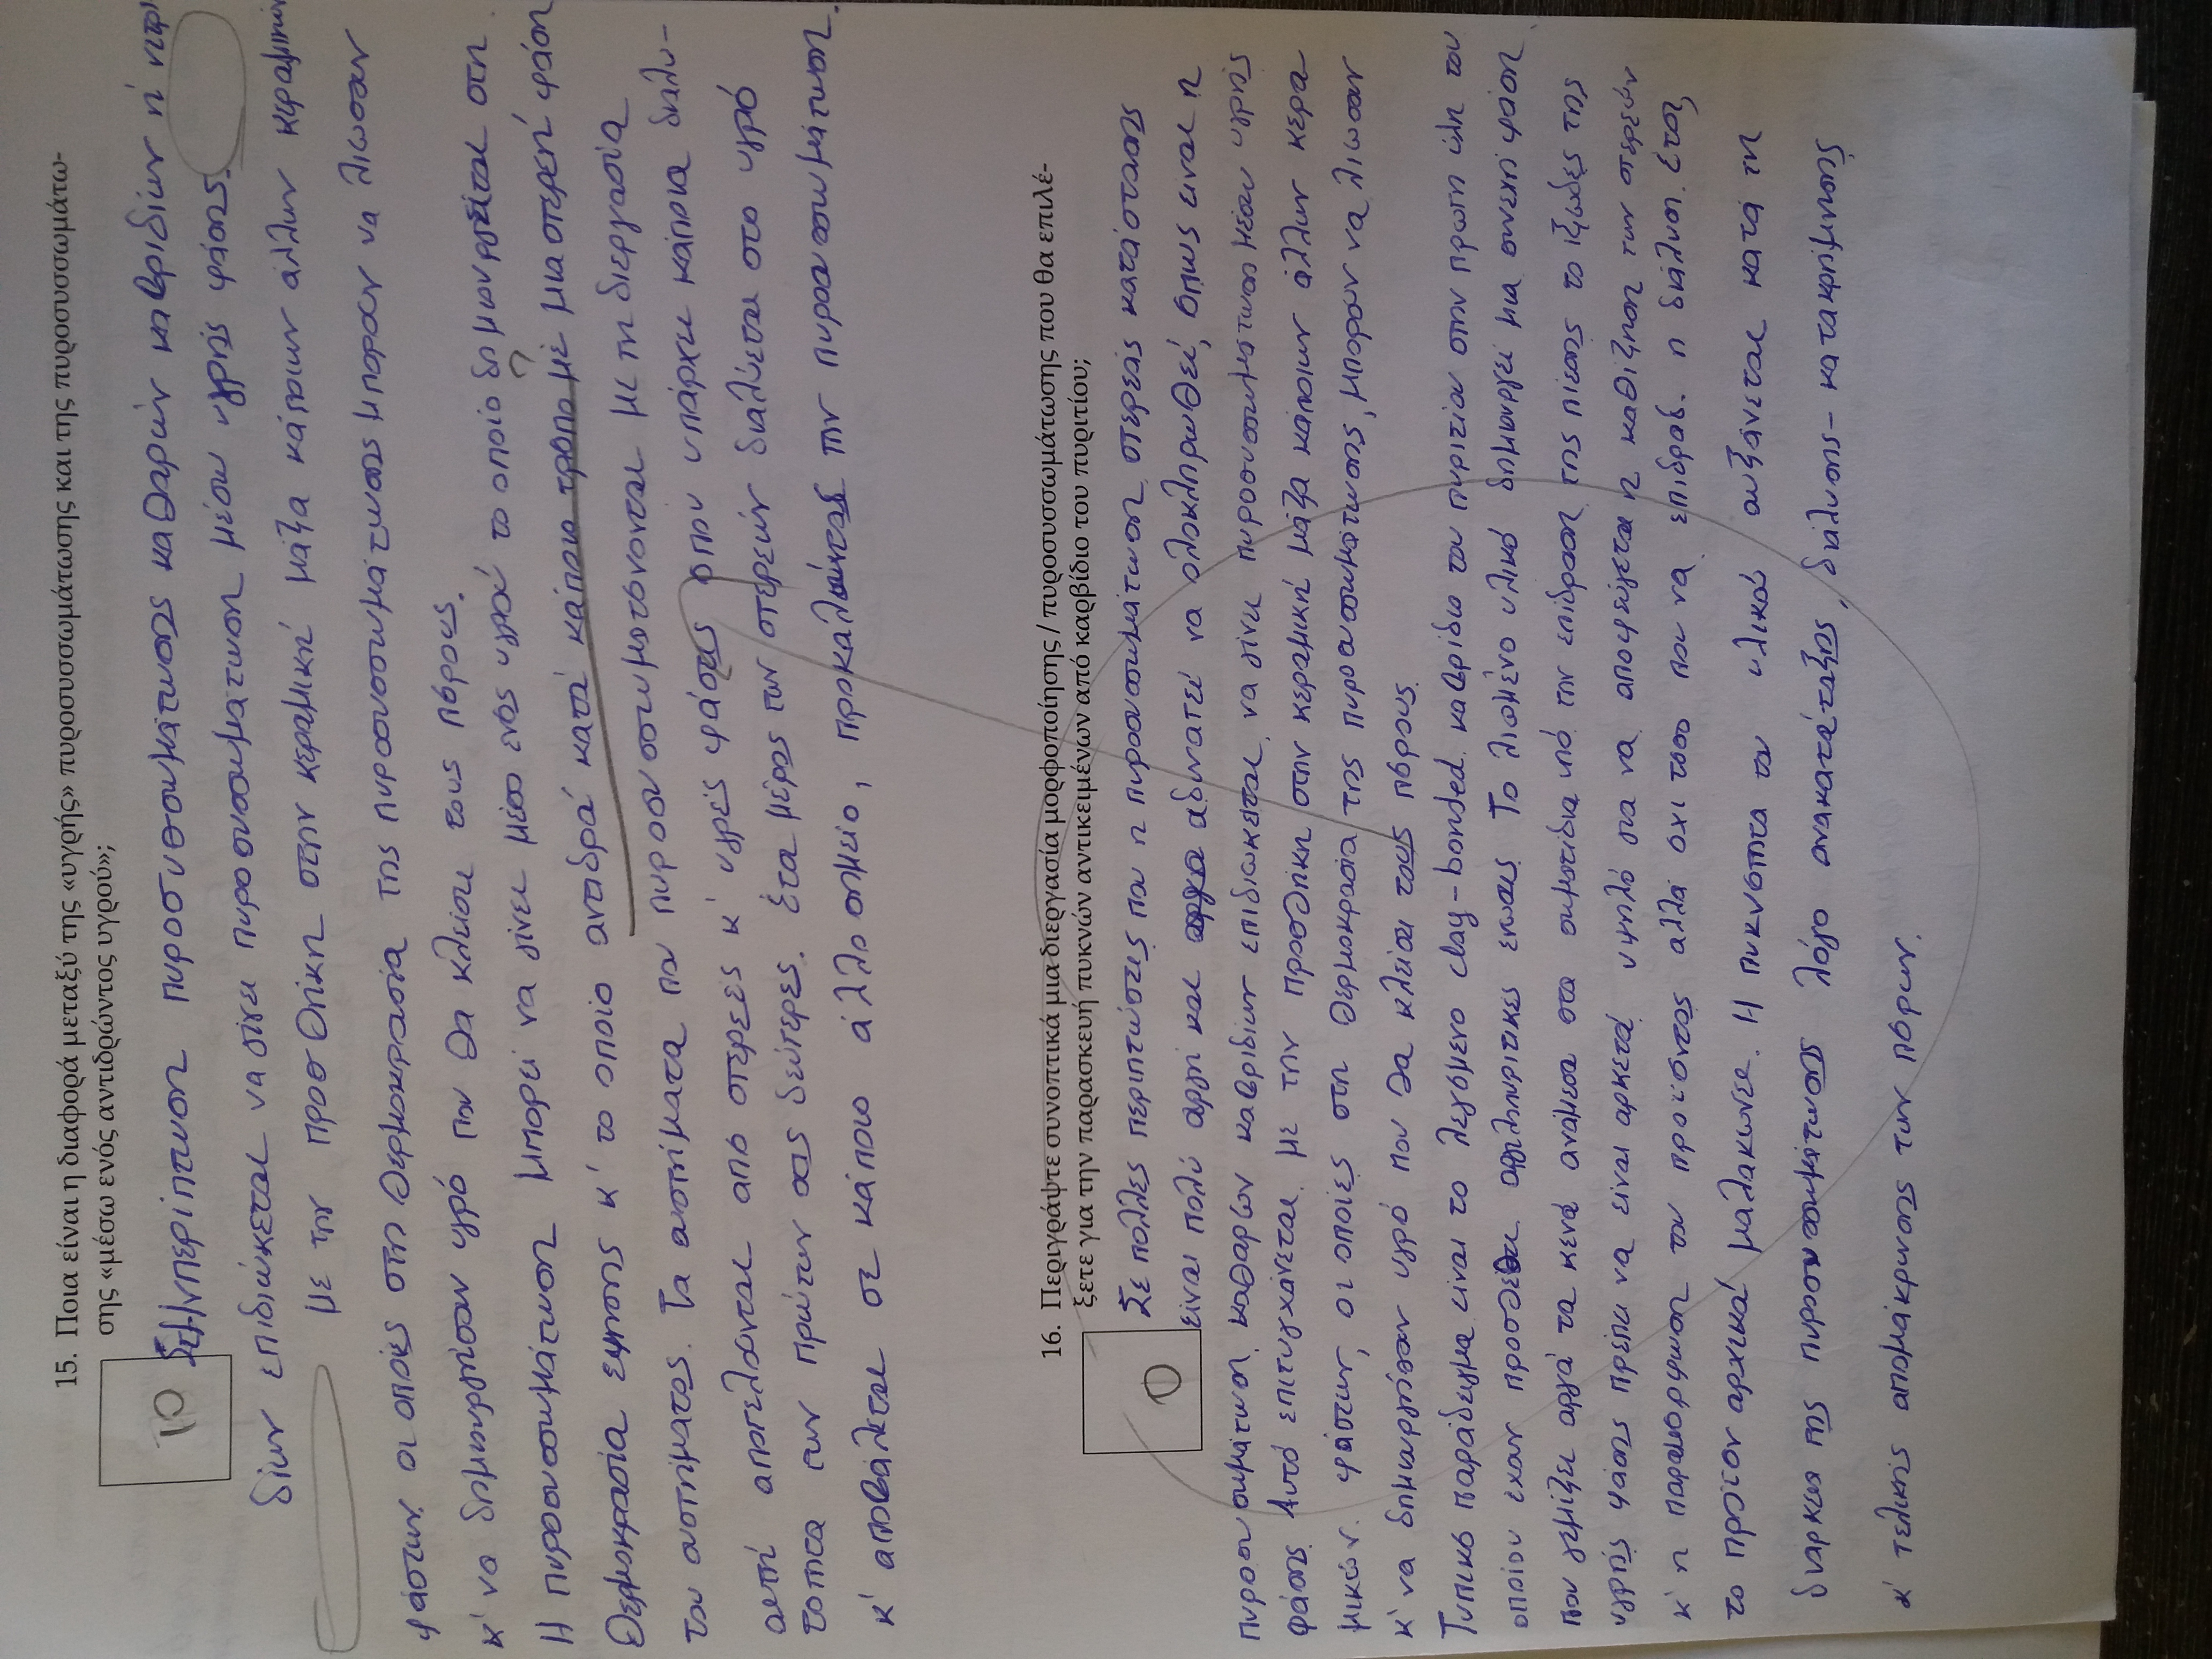 15. Ποια είναι η διαφορά μεταξύ της «υγρής» πυροσυσσωμάτωσης και της πυροσυσσωμάτω-
σης «μέσω ενός αντιδρώντος υγρού»;
10
περίπτωση πυροσυσσωμάτωσης καθαρών καρβιδίων ή νιτρι
δίων επιδιώκεται να γίνει πυροσυσσωμάτωση μέσου υγρής φάσης.
με την προσθήκη στην κεραμική μάζα κάποιων άλλων κεραμικών
φάσεων, οι οποίες στη θερμοκρασία της πυροσυσσωμάτωσης μπορούν να λιώσουν
κ' να δημιουργήσουν υγρό που θα κλείσει τους πόρους.
Η πυροσυσσωμάτωση μπορεί να γίνει μέσω ενός υγρού το οποίο δημιουργείται στη
θερμοκρασία έψησης κ' το οποίο αντιδρά κατά κάποιο τρόπο με μια στερεή φάση
του συστήματος. Τα συστήματα που πυροσυσσωματώνονται με τη διεργασία
αυτή αποτελούνται από στερεές κ' υγρές φάσεις όπου υπάρχει κάποια διαλυ-
τότητα των πρώτων στις δεύτερες. έτσι μέρος των στερεών διαλύεται στο υγρό
κ' αποβάλεται σε κάποιο άλλο σημείο, προκαλώντας την πυροσυσσωμάτωση.
16. Περιγράψτε συνοπτικά μια διεργασία μορφοποίησης / πυροσυσσωμάτωσης που θα επιλέ-
ξετε για την παρασκευή πυκνών αντικειμένων από καρβίδιο του πυριτίου;
0
Σε πολλές περιπτώσεις που η πυροσυσσωμάτωση στερεάς κατάστασης
είναι πολύ αργή και αδυνατεί να ολοκληρωθεί, όπως είναι η
πυροσυσσωμάτωση καθαρών καρβιδίων επιδιώκεται να γίνει πυροσυσσωμάτωση μέσου υγρής
φάσης. Αυτό επιτυγχάνεται με την προσθήκη στην κεραμική μάζα κάποιων άλλων κερα
μικών φάσεων, οι οποίες στη θερμοκρασία της πυροσυσσωμάτωσης, μπορουν να λιωσουν
κ' να δημιουργήσουν υγρό που θα κλείσει τους πόρους.
Τυπικό παράδειγμα είναι το λεγόμενο clay-bonded καρβίδιο του πυριτίου στην πρώτη ύλη του
οποίου εχουν προσθεθει αργιλοπυριτικες ενωσεις. Το λιωμένο υλικό δημιουργεί μια συνεχή φάση
που γεμίζει αργά τα κενά ανάμεσα στα σωματίδια υπό την επίδραση της πίεσης. το ιξώδες της
υγρής φάσης πρέπει να είναι αρκετά υψηλό για να αποφεύγεται η καθίζηση των στερεών
κ' η παραμόρφωση του προϊόντος αλλά όχι τόσο που να επιβραδ. η διάλυση. έτσι,
το προϊον αρχικά μαλακώνει. Η πυκνότητα του υλικού αυξάνεται κατά τη
διαρκεια της πυροσυσσωμάτωσης λόγο ανακατάταξης, διάλυσης-κατακρήμνισης
κ' τελικής απομάκρυνσης των πόρων.